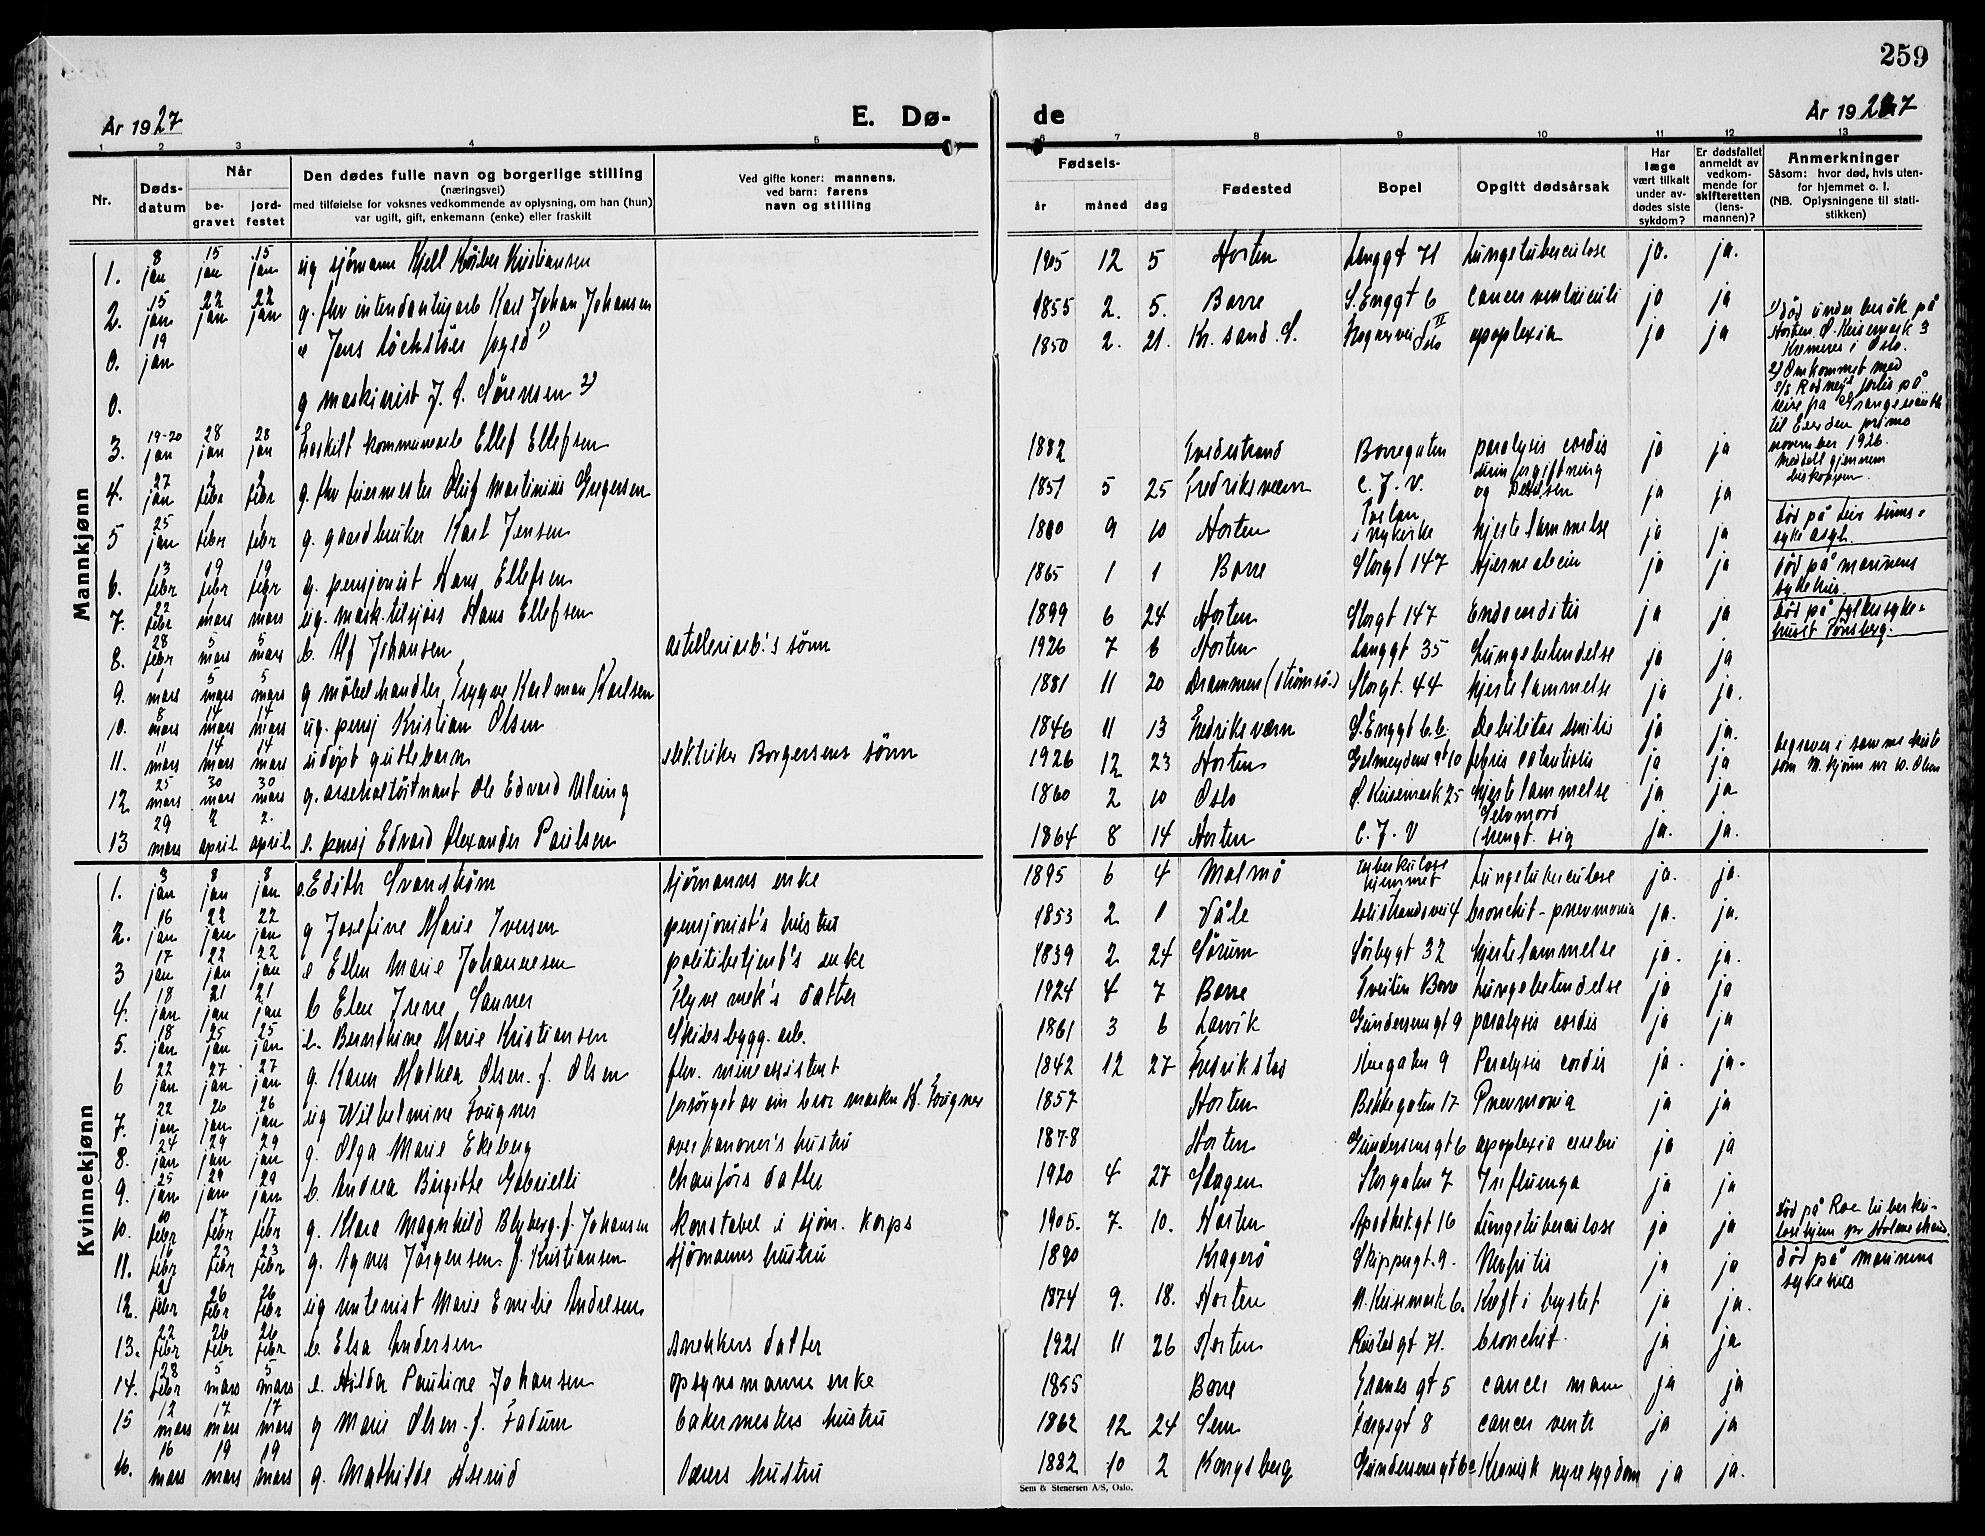 259
År 1927
E. Dø-
de
År 1927
1 2 3 4 5 6 7 8 9 10 11 12 13
Nr.
Døds-
datum
Når
be-
gravet
jord-
festet
Den dødes fulle navn og borgerlige stilling
(næringsvei)
med tilføielse for voksnes vedkommende av oplysning, om han (hun)
var ugift, gift, enkemann (enke) eller fraskilt
Ved gifte koner: mannens,
ved barn: farens
navn og stilling
Fødsels-
år måned dag
Fødested
Bopel
Opgitt dødsårsak
Har
læge
vært tilkalt
under av-
dødes siste
sykdom?
Er dødsfallet
anmeldt av
vedkom-
mende for
skifteretten
(lens-
mannen)?
Anmerkninger
Såsom: hvor død, hvis uten-
for hjemmet o. l.
(NB. Oplysningene til stati-
stikken)
Mannkjønn
1. 8 jan 15 jan 15 jan ug sjömann Kjell Körber Kristiansen 1905 12 5 Horten Langgt 71 Lungetuberculose ja. ja.
2. 15 jan 22 jan 22 jan g. fhv intendanturarb Karl Johan Johansen 1855 2. 5. Borre S. Enggt 6 cancer ventriculi ja ja
0. 19 jan e Jens 1) 1850 2. 21. Kr. sand. S. Oslo apoplexia ja ja
0. g maskinist J. S. Sörensen 2)
3. 19-20 jan 28 jan 28 jan fraskilt kommunearb Ellef Ellefsen 1882 Borregaten paralysis cordis ja ja
4. 27 jan 2 febr 2 febr g. fhv feiermester Oluf Martinius Gregersen 1851 5 25 Fredriksværn C. J. V. urinforgiftning og ja ja
5 25 jan 1 febr 1 febr g. gaardbruker Karl Jensen 1880 9 10 Horten i Nykirke hjertelammelse ja ja
6. 13 febr 19 febr 19 febr g. pensjonist Hans Ellefsen 1865 1 1 Borre Storgt 147 ja ja
7. 22 febr 1 mars 1 mars ug. mask.tilsjös Hans Ellefsen 1899 6 24 Horten Storgt 147 Endocarditis ja ja
8. 28 febr 5 mars 5 mars b. Alf Johansen artilleriarb's sönn 1926 7 6 Horten Langgt 35 Lungebetendelse ja ja
9. 1 mars 5 mars 5 mars g möbelhandler Trygve Karlman Karlsen 1881 11 20 Drammen Storgt. 44 hjertelammelse ja ja.
10. 8 mars 14 mars 14 mars ug. pensj Kristian Olsen 1846 11 13 Fredriksværn S. Enggt 6b. Debilitas senilis ja ja.
11. 11 mars 14 mars 14 mars udöpt guttebarn elektriker Borgersens sönn 1926 12 23 Horten ja ja
12 25 mars 30 mars 30 mars g. arsenallöitnant Ole Edvard Ulsing 1860 2 10 Oslo Ö. Keisemark 25 hjertelammelse ja ja
13 29 mars 2 april. 2. april. e. pensj Edvard Alexander Paulsen 1864 8 14 Horten C. J. V Selvmord (hengt. sig ja. ja.
1) död under besök på
Horten Ö. Keisemark 3
i Oslo.
2) Omkommet med
s/s forlis på
reise fra
til primo
november 1926.
Meddelt gjennem
biskoppen.
död på
död på marinens
sykehus.
död på fylkessyke-
huset Tönsberg.
begraves i samme kiste
som M.kjönn nr 10. Olsen
Kvinnekjønn
1. 3 jan 8 jan 8 jan e. Edith Svanström sjömanns enke 1895 6 4 Malmö Tuberkulose hjemmet Lungetuberculose ja. ja.
2. 16 jan 22 jan 22 jan g Josefine Marie Iversen pensjonist's hustru 1853 2 1 Våle bronchit-pnevmonia ja. ja.
3 17 jan 22 jan 22 jan e Ellen Marie Johannesen politibetjent's enke 1839 2 24 Sörum Sörbygt 32 hjertelammelse ja. ja.
4. 18 jan 21 jan 21 jan b Elen Irene Sanner Flyvemek's datter 1924 4 7 Borre Tveiten Borre Lungebetendelse ja ja
5. 18 jan 25 jan 25 jan e. Bernthine Marie Kristiansen Skibsbygg. arb. 1861 3 6 Larvik Gundersensgt 9 paralysis cordis ja ja
6 22 jan 27 jan 27 jan g. Karen Mathea Olsen f. Olsen fhv. mineassistent 1842 12 27 Fredrikstad 9 Paralysis cordis ja. ja.
7. 22 jan 26 jan 26 jan ug Wilhelmine Fougner forsörget av sin bror maskn H. Fougner 1857 Horten Bekkegaten 17 Pnevmonia ja ja
8. 24 jan 29 jan 29 jan g. Olga Marie Ekeberg overkanoner's hustru 1878 Horten Gundersensgt 6 apoplexia cerebri ja ja
9. 25 jan 29 jan 29 jan b. Andrea Birgitte Gabrielli chauförs datter 1920 4 27 Skagen Storgaten 7 Influenza ja ja
10. 10 febr 17 febr 17 febr g. Klara Magnhild Blyberg f. Johansen Konstabel i sjöm. korps 1905. 7. 10. Horten Apothekgt 16 Lungetuberculose ja ja
11. 16 febr 23 febr 23 febr g. Agnes Jörgensen f. Kristiansen sjömanns hustru 1890 Kragerö Skippergt. 9. Nefritis ja ja
12. 21 febr 26 febr 26 febr ug rentenist Marie Emilie Andresen 1874 9. 18. Horten N. Keisemark 6. Kreft i brystet ja ja.
13. 22 febr 26 febr 26 febr b. Elsa Andersen snekkers datter 1921 11 26 Horten Rustadgt 71. bronchit. ja ja
14. 28 febr 5 mars 5 mars e. Hilda Pauline Johansen opsynsmanns enke 1855 Borre Tranesgt 5 cancer mam ja ja
15 12 mars 17 mars 17 mars g Marie Olsen f. Fadum bakermesters hustru 1862 12 24 Sem Færgegt 8 cancer ventr ja ja
16. 16 mars 19 mars 19 mars g. Mathilde Åserud hustru 1882 10 2 Kongsberg Gundersensgt 6c Kronisk nyresygdom ja ja.
död på Roe tuberku-
losehjem pr Holmestrand.
död på marinens
sykehus
Sem & Stenersen A/S, Oslo.